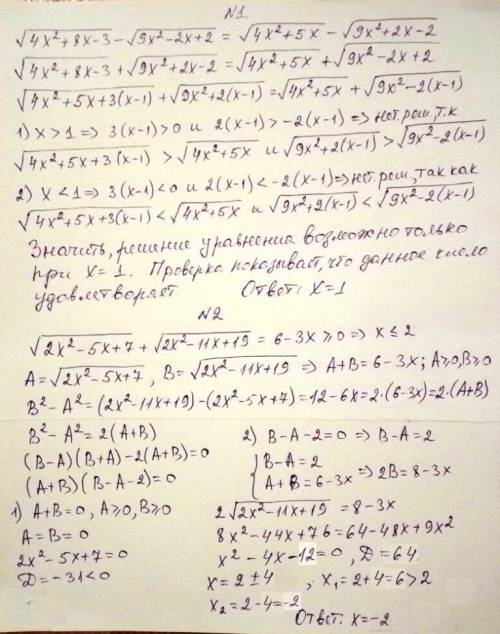 N1
√(4x²+8x-3) - √(9x²-2x+2) = √(4x²+5x) - √(9x²+2x-2)
√(4x²+8x-3) + √(9x²+2x-2) = √(4x²+5x) + √(9x²-2x+2)
√(4x²+5x+3(x-1)) + √(9x²+2(x-1)) = √(4x²+5x) + √(9x²-2(x-1))
1) x>1 => 3(x-1)>0 и 2(x-1)>-2(x-1) => нет реш, т.к
√(4x²+5x+3(x-1)) > √(4x²+5x) и √(9x²+2(x-1)) > √(9x²-2(x-1))
2) x<1 => 3(x-1)<0 и 2(x-1)<-2(x-1) => нет реш, так как
√(4x²+5x+3(x-1)) < √(4x²+5x) и √(9x²+2(x-1)) < √(9x²-2(x-1))
Значить, решение уравнения возможно только
при x=1. Проверка показывает, что данное число
удовлетворяет Ответ: x=1
N2
√(2x²-5x+7) + √(2x²-11x+19) = 6-3x ≥ 0 => x ≤ 2
A = √(2x²-5x+7), B = √(2x²-11x+19) => A+B=6-3x; A≥0, B≥0
B²-A² = (2x²-11x+19)-(2x²-5x+7) = 12-6x = 2·(6-3x) = 2·(A+B)
B²-A² = 2(A+B)
(B-A)(B+A)-2(A+B)=0
(A+B)(B-A-2)=0
1) A+B=0, A≥0, B≥0
A=B=0
2x²-5x+7=0
D=-31<0
2) B-A-2=0 => B-A=2
{ B-A=2
A+B=6-3x => 2B=8-3x
2√(2x²-11x+19) = 8-3x
8x²-44x+76=64-48x+9x²
x²-4x-12=0, D=64
x=2±4, x₁=2+4=6>2
x₂=2-4=-2
Ответ: x=-2